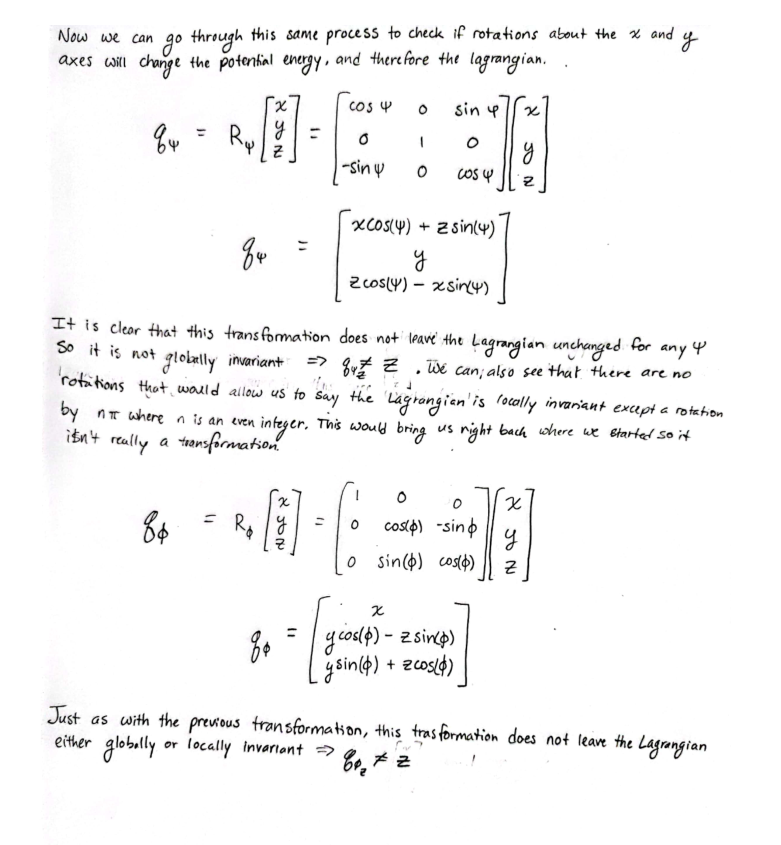 Now we can go through this same process to check if rotations about the x and y
axes will change the potential energy, and therefore the lagrangian.
q_ψ = R_ψ [x y z] = [cos ψ 0 sin ψ; 0 1 0; -sin ψ 0 cos ψ] [x y z]
q_ψ = [x cos(ψ) + z sin(ψ); y; z cos(ψ) - x sin(ψ)]
It is clear that this transformation does not leave the Lagrangian unchanged for any ψ
So it is not globally invariant => q_ψ_z ≠ z . We can also see that there are no
rotations that would allow us to say the Lagrangian is locally invariant except a rotation
by nπ where n is an even integer. This would bring us right back where we started so it
isn't really a transformation.
q_ϕ = R_ϕ [x y z] = [1 0 0; 0 cos(ϕ) -sin ϕ; 0 sin(ϕ) cos(ϕ)] [x y z]
q_ϕ = [x; y cos(ϕ) - z sin(ϕ); y sin(ϕ) + z cos(ϕ)]
Just as with the previous transformation, this trasformation does not leave the Lagrangian
either globally or locally invariant => q_ϕ_z ≠ z